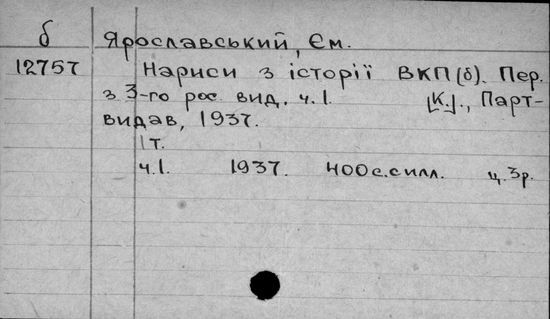 б Ярославський, Єм.
12757 Нариси з історії ВКП(б). Пер.
з 3-го рос. вид. ч.1. [К.]., Парт-
видав, 1937.
1т.
ч.1. 1937. 400с.силл. ц.3р.